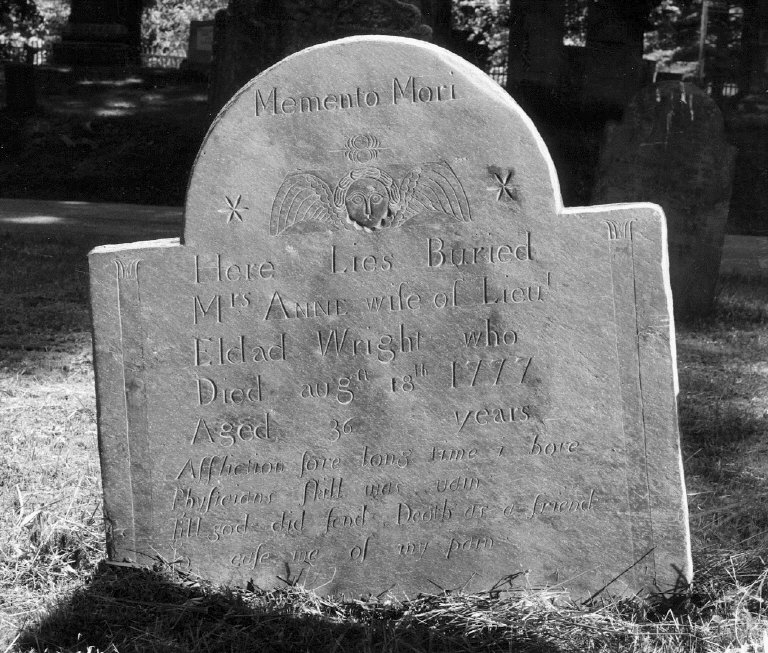 Memento Mori
Here Lies Buried
Mrs ANNE wife of Lieut
Eldad Wright who
Died augst 18th 1777
Aged 36 years
Affliction sore long time i bore
Phyſicians ſkill was vain
till god did ſend Death as a friend
to eaſe me of my pain